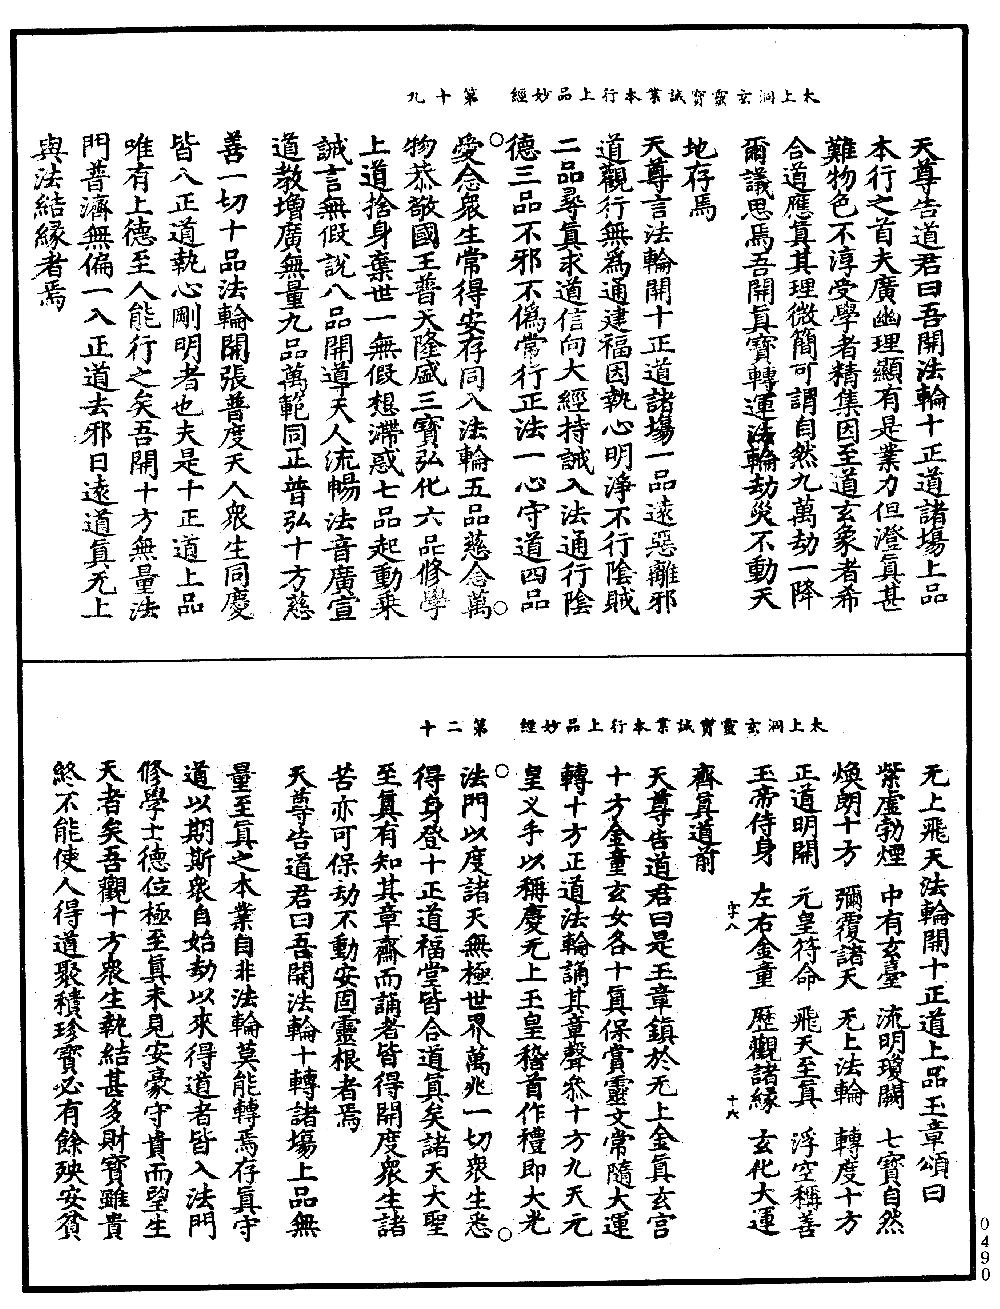 太上洞玄靈寶誡業本行上品妙經　第十九
天尊告道君曰吾開法輪十正道諸場上品
本行之首夫廣幽理顯有是業力但澄真甚
難物色不淳受學者精集因至道玄象者希
合道應真其理微簡可謂自然九萬劫一降
爾議思焉吾開真寶轉運法輪劫災不動天
地存焉
天尊言法輪開十正道諸場一品遠惡離邪
道觀行無爲通建福因執心明淨不行陰賊
二品尋真求道信向大經持誡入法通行陰
德三品不邪不僞常行正法一心守道四品
愛念衆生常得安存同入法輪五品慈念萬
物恭敬國王普天隆盛三寶弘化六品修學
上道捨身棄世一無假想滯惑七品起動乗
誠言無假說八品開導天人流暢法音廣宣
道教增廣無量九品萬範同正普弘十方慈
善一切十品法輪開張普度天人衆生同慶
皆入正道執心剛明者也夫是十正道上品
唯有上德至人能行之矣吾開十方無量法
門普濟無偏一入正道去邪日遠道真无上
與法結緣者焉
太上洞玄靈寶誡業本行上品妙經　第二十
无上飛天法輪開十正道上品玉章頌曰
紫虛勃煙　中有玄臺　流明瓊闕　七寶自然
煥朗十方　彌覆諸天　无上法輪　轉度十方
正道明開　元皇符命　飛天至真　浮空稱善
玉帝侍身　左右金童　歷觀諸緣　玄化大運
齊真道前
字八　十六
天尊告道君曰是玉章鎮於无上金真玄宮
十方金童玄女各十真保賞靈文常隨大運
轉十方正道法輪誦其章聲叅十方九天元
皇义手以稱慶无上玉皇稽首作禮即大光
法門以度諸天無極世界萬兆一切衆生悉
得身登十正道福堂皆合道真矣諸天大聖
至真有知其章齋而誦者皆得開度衆生諸
苦亦可保劫不動安固靈根者焉
天尊告道君曰吾開法輪十轉諸場上品無
量至真之本業自非法輪莫能轉焉存真守
道以期斯衆自始劫以來得道者皆入法門
修學士德位極至真未見安豪守貴而望生
天者矣吾觀十方衆生執結甚多財寶雖貴
終不能使人得道聚積珍寶必有餘殃安貧
0490